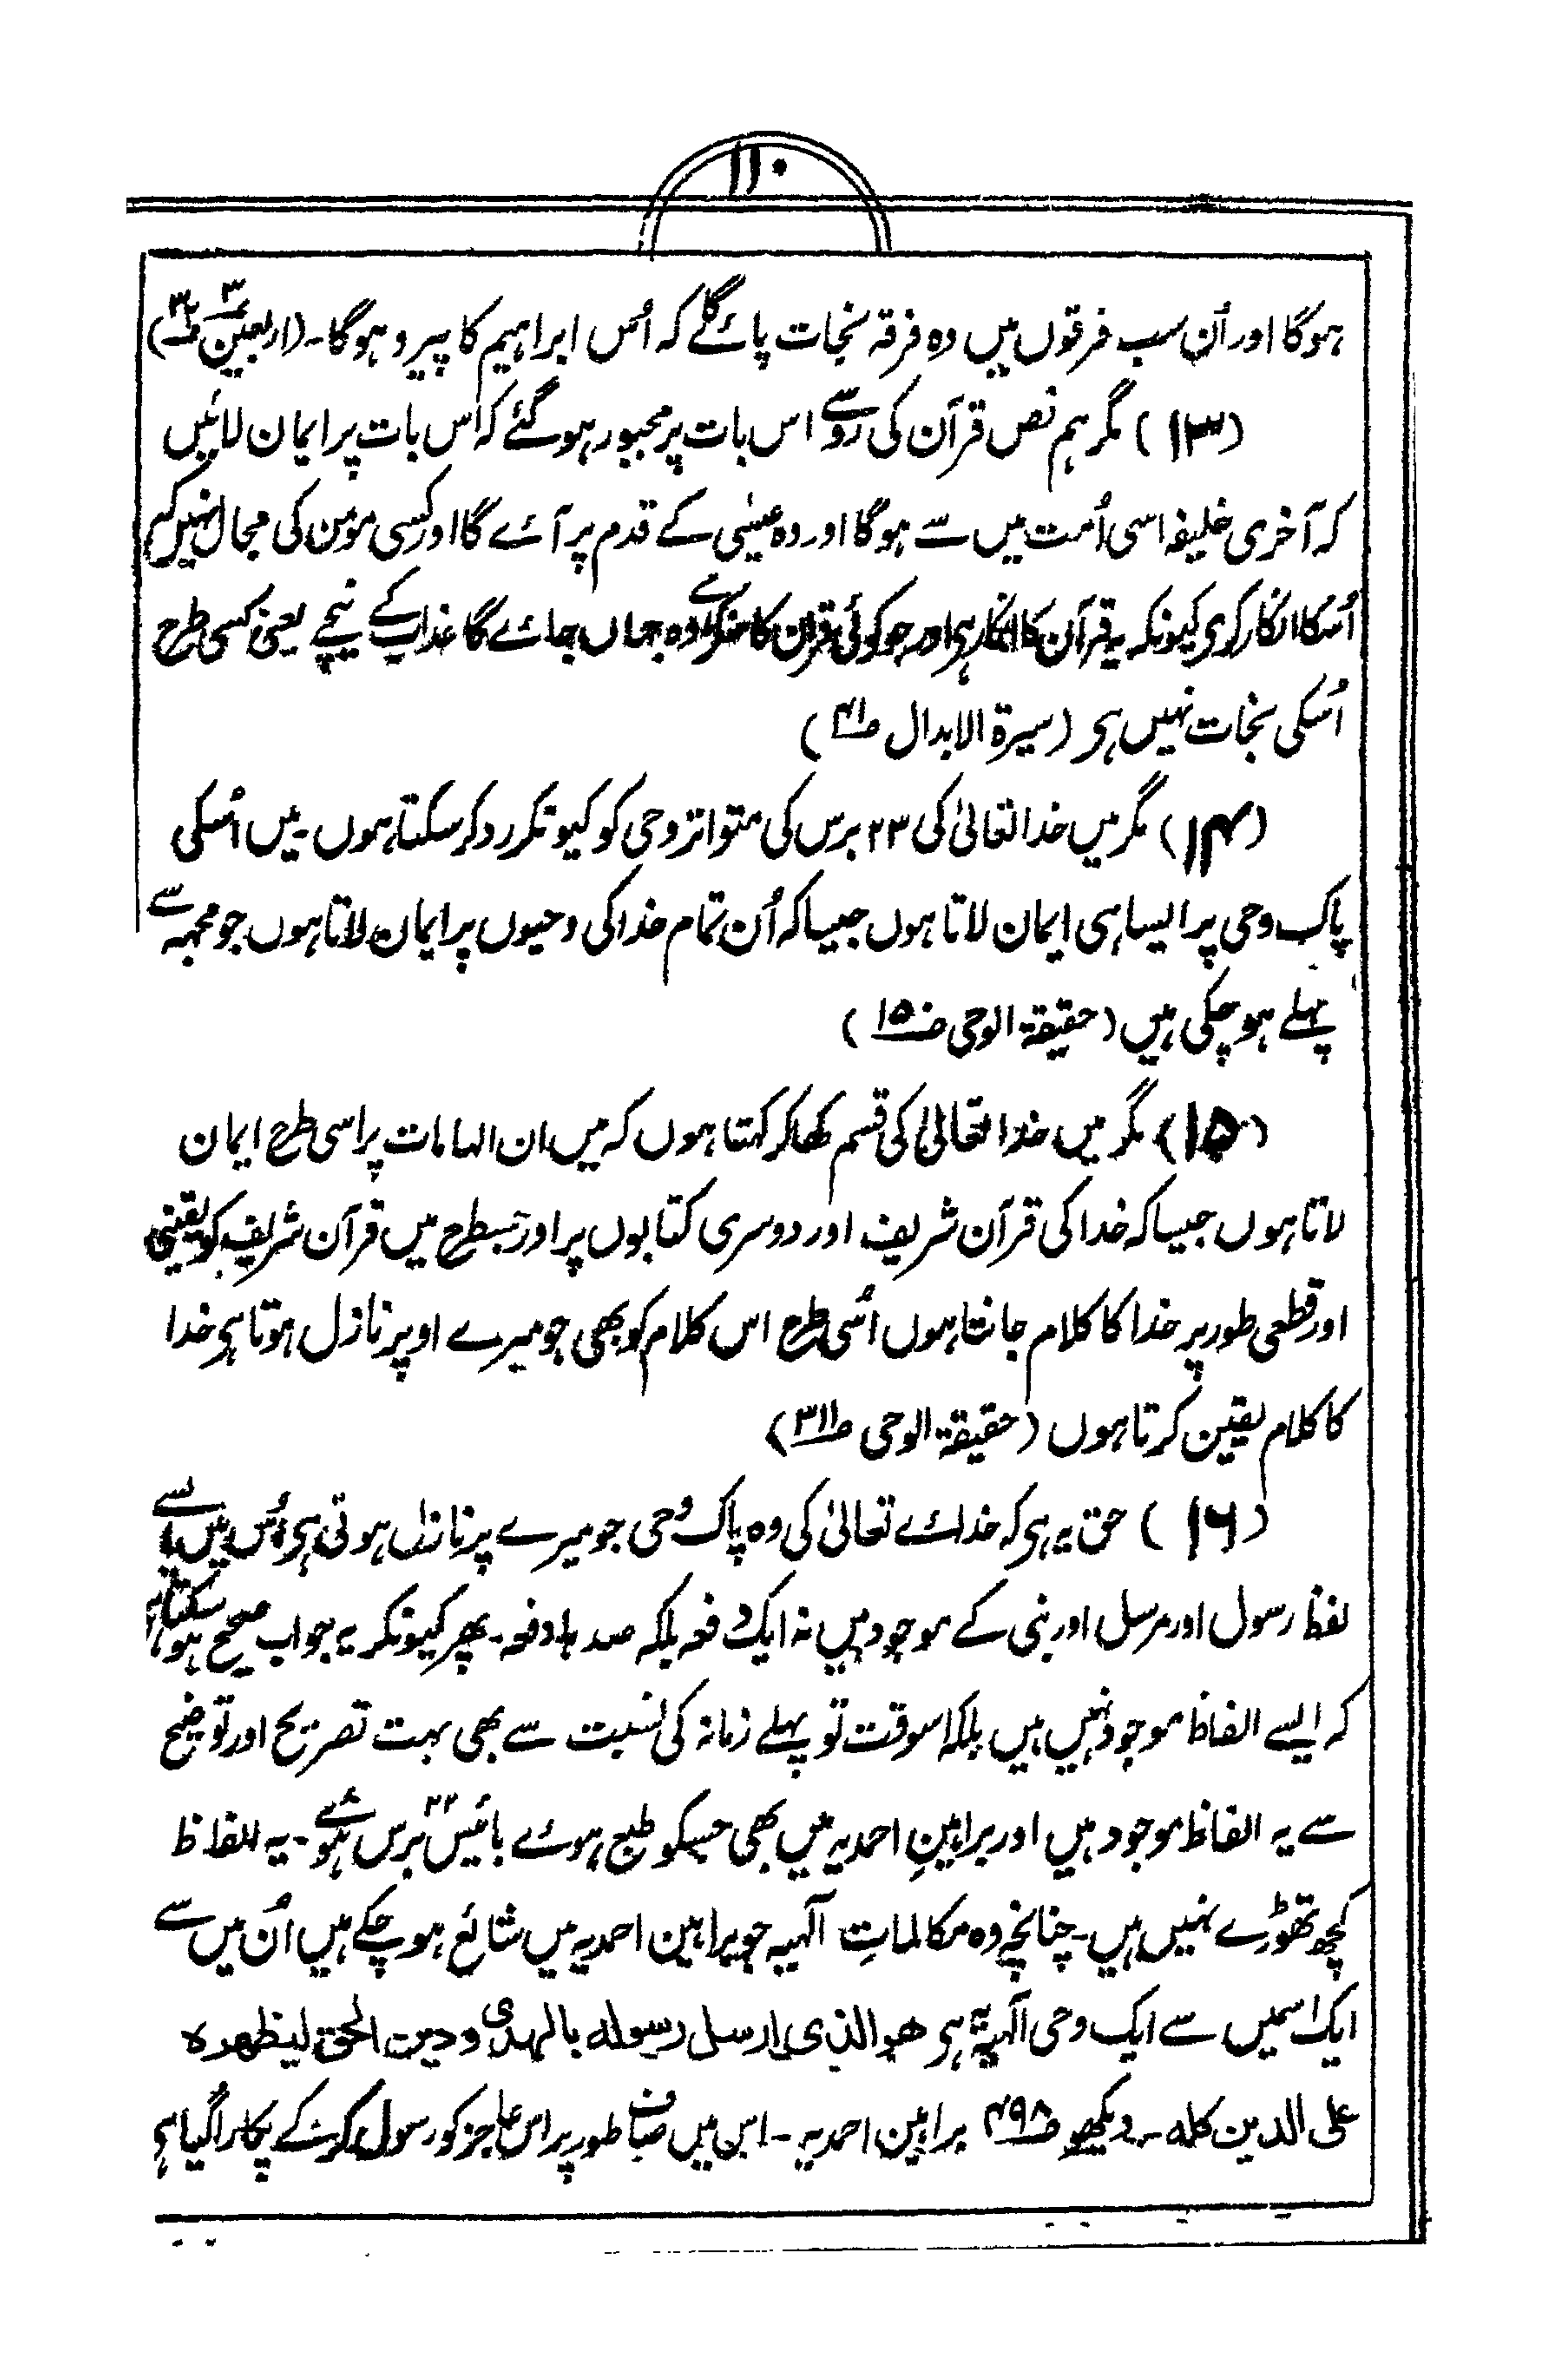 ۱۱۰
ہوگا اور اُن سب فرقوں میں وہ فرقہ نجات پائے گا کہ اُس ابراہیم کا پیرو ہوگا۔ (اربعین ۳
(۱۳) مگر ہم نص قرآن کی رو سے اس بات پر مجبور ہوگئے کہ اس بات پر ایمان لائیں
کہ آخری خلیفہ اسی اُمت میں سے ہوگا اور وہ عیسٰی کے قدم پر آئے گا اور کسی مومن کی مجال نہیں کہ
اُسکا انکار کری کیونکہ یہ قرآن کا انکار ہی اور جو کوئی قرآن کا منکر ہے وہ جہاں جائے گا عذاب کے نیچے یعنی کسی طرح
اُسکی نجات نہیں ہی (سیرۃ الابدال ص۴۱)
(۱۴) مگر میں خدا تعالیٰ کی ۲۳ برس کی متواتر وحی کو کیونکر رد کر سکتا ہوں۔ میں اُسکی
پاک وحی پر ایسا ہی ایمان لاتا ہوں جیسا کہ اُن تمام خدا کی وحیوں پر ایمان لاتا ہوں جو مجہہ سے
پہلے ہو چکی ہیں (حقیقۃ الوحی ص۱۵۰)
(۱۵) مگر میں خدا تعالیٰ کی قسم کھا کر کہتا ہوں کہ میں ان الہامات پر اسی طرح ایمان
لاتا ہوں جیسا کہ خدا کی قرآن شریف اور دوسری کتابوں پر اور جسطرح میں قرآن شریف کو یقینی
اور قطعی طور پر خدا کا کلام جانتا ہوں اُسی طرح اس کلام کو بھی جو میرے اوپر نازل ہوتا ہی خدا
کا کلام یقین کرتا ہوں (حقیقۃ الوحی ص۲۱۱)
(۱۶) حق یہ ہی کہ خدائے تعالیٰ کی وہ پاک وحی جو میرے پر نازل ہوتی ہی اُس میں ایسے
لفظ رسول اور مرسل اور نبی کے موجود ہیں نہ ایک دفعہ بلکہ صدہا دفعہ۔ پھر کیونکر یہ جواب صحیح ہو سکتا ہی
کہ ایسے الفاظ موجود نہیں ہیں بلکہ اسوقت تو پہلے زمانہ کی نسبت سے بھی بہت تصریح اور توضیح
سے یہ الفاظ موجود ہیں اور براہینِ احمدیہ میں بھی جسکو طبع ہوئے بائیس ۲۲ برس ہوئے۔ یہ الفاظ
کچھ تھوڑے نہیں ہیں۔ چنانچہ وہ مکالماتِ الٰہیہ جو براہین احمدیہ میں شائع ہو چکے ہیں اُن میں سے
ایک اسمیں سے ایک وحی الٰہیہ ہی ھو الذی ارسل رسوله بالھدی ودین الحق لیظھرہ
علی الدین کله ۔ دیکھو ص۴۹۸ براہین احمدیہ ۔ اس میں صاف طور پر اس عاجز کو رسول کرکے پکارا گیا ہی